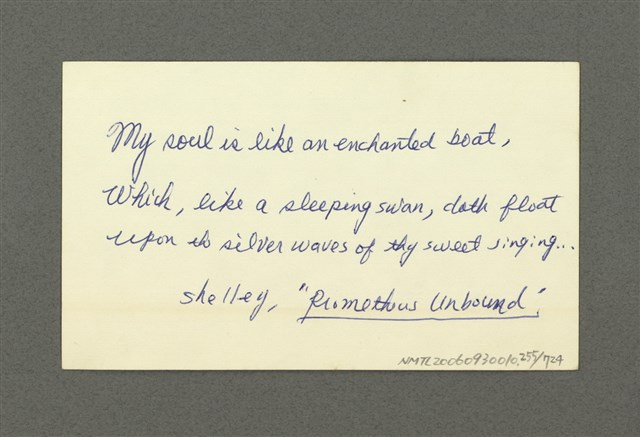 My soul is like an enchanted boat,
Which, like a sleeping swan, doth float
upon the silver waves of thy sweet singing...
Shelley, "Prometheus Unbound".
NMTL20060930010.255/724